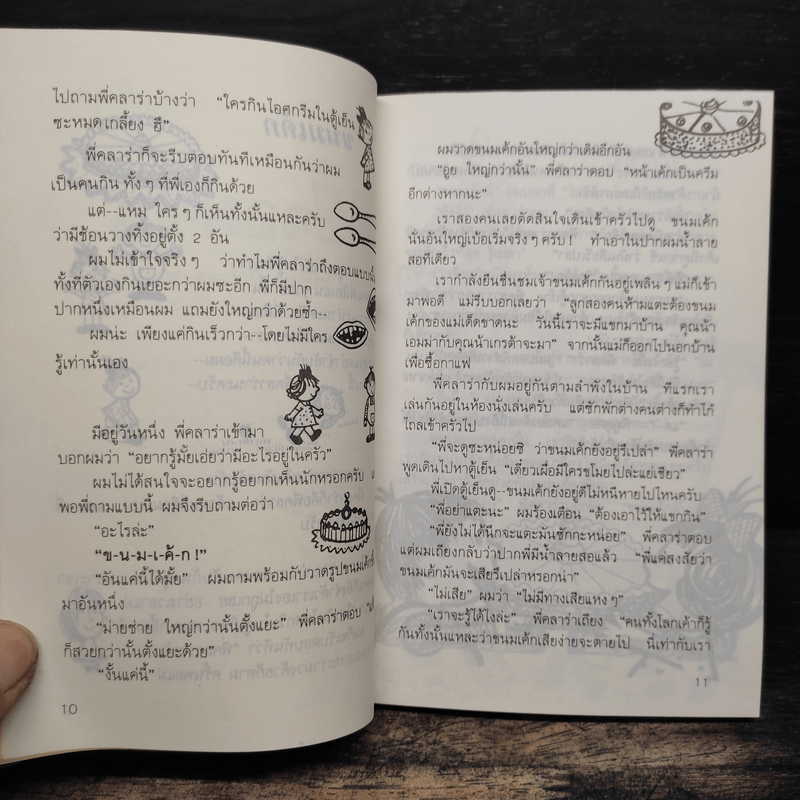 ไปถามพี่คลาร่าบ้างว่า "ใครกินไอศกรีมในตู้เย็น
ซะหมดเกลี้ยง ฮึ"
พี่คลาร่าก็จะรีบตอบทันทีเหมือนกันว่าผม
เป็นคนกิน ทั้ง ๆ ที่พี่เองก็กินด้วย
แต่--แหม ใคร ๆ ก็เห็นทั้งนั้นแหละครับ
ว่ามีช้อนวางทิ้งอยู่ตั้ง 2 อัน
ผมไม่เข้าใจจริง ๆ ว่าทำไมพี่คลาร่าถึงตอบแบบนั้น
ทั้งที่ตัวเองกินเยอะกว่าผมซะอีก พี่ก็มีปาก
ปากหนึ่งเหมือนผม แถมยังใหญ่กว่าด้วยซ้ำ--
ผมน่ะ เพียงแค่กินเร็วกว่า--โดยไม่มีใคร
รู้เท่านั้นเอง
มีอยู่วันหนึ่ง พี่คลาร่าเข้ามา
บอกผมว่า "อยากรู้มั้ยเอ่ยว่ามีอะไรอยู่ในครัว"
ผมไม่ได้สนใจจะอยากรู้อยากเห็นนักหรอกครับ
พอพี่ถามแบบนี้ ผมจึงรีบถามต่อว่า
"อะไรล่ะ"
"ข-น-ม-เ-ค้-ก!"
"อันแค่นี้ได้มั้ย" ผมถามพร้อมกับวาดรูปขนมเค้กขึ้น
มาอันหนึ่ง
"ม่ายช่าย ใหญ่กว่านั้นตั้งแยะ" พี่คลาร่าตอบ
ก็สวยกว่านั้นตั้งแยะด้วย"
"งั้นแค่นี้"
10
ผมวาดขนมเค้กอันใหญ่กว่าเดิมอีกอัน
"อูย ใหญ่กว่านั้น" พี่คลาร่าตอบ "หน้าเค้กเป็นครีม
อีกต่างหากนะ"
เราสองคนเลยตัดสินใจเดินเข้าครัวไปดู ขนมเค้ก
นั่นอันใหญ่เบ้อเริ่มจริง ๆ ครับ! ทำเอาในปากผมน้ำลาย
สอทีเดียว
เรากำลังยืนชื่นชมเจ้าขนมเค้กกันอยู่เพลิน ๆ แม่ก็เข้า
มาพอดี แม่รีบบอกเลยว่า "ลูกสองคนห้ามแตะต้องขนม
เค้กของแม่เด็ดขาดนะ วันนี้เราจะมีแขกมาบ้าน คุณน้า
เอมม่ากับคุณน้าเกรต้าจะมา" จากนั้นแม่ก็ออกไปนอกบ้าน
เพื่อซื้อกาแฟ
พี่คลาร่ากับผมอยู่กันตามลำพังในบ้าน ทีแรกเรา
เล่นกันอยู่ในห้องนั่งเล่นครับ แต่ซักพักต่างคนต่างก็ทำไก๋
ไถลเข้าครัวไป
"พี่จะดูซะหน่อยซิ ว่าขนมเค้กยังอยู่รึเปล่า" พี่คลาร่า
พูดเดินไปหาตู้เย็น "เดี๋ยวเผื่อมีใครขโมยไปล่ะแย่เชียว"
พี่เปิดตู้เย็นดู--ขนมเค้กยังอยู่ดีไม่หนีหายไปไหนครับ
"พี่อย่าแตะนะ" ผมร้องเตือน "ต้องเอาไว้ให้แขกกิน"
"พี่ยังไม่ได้นึกจะแตะมันซักกะหน่อย" พี่คลาร่าตอบ
แต่ผมเถียงกลับว่าปากพี่มีน้ำลายสอแล้ว "พี่แค่สงสัยว่า
ขนมเค้กมันจะเสียรึเปล่าหรอกน่า"
"ไม่เสีย" ผมว่า "ไม่มีทางเสียแหง ๆ"
"เราจะรู้ได้ไงล่ะ" พี่คลาร่าเถียง "คนทั้งโลกเค้าก็รู้
กันทั้งนั้นแหละว่าขนมเค้กเสียง่ายจะตายไป นี่เท่ากับเรา
11